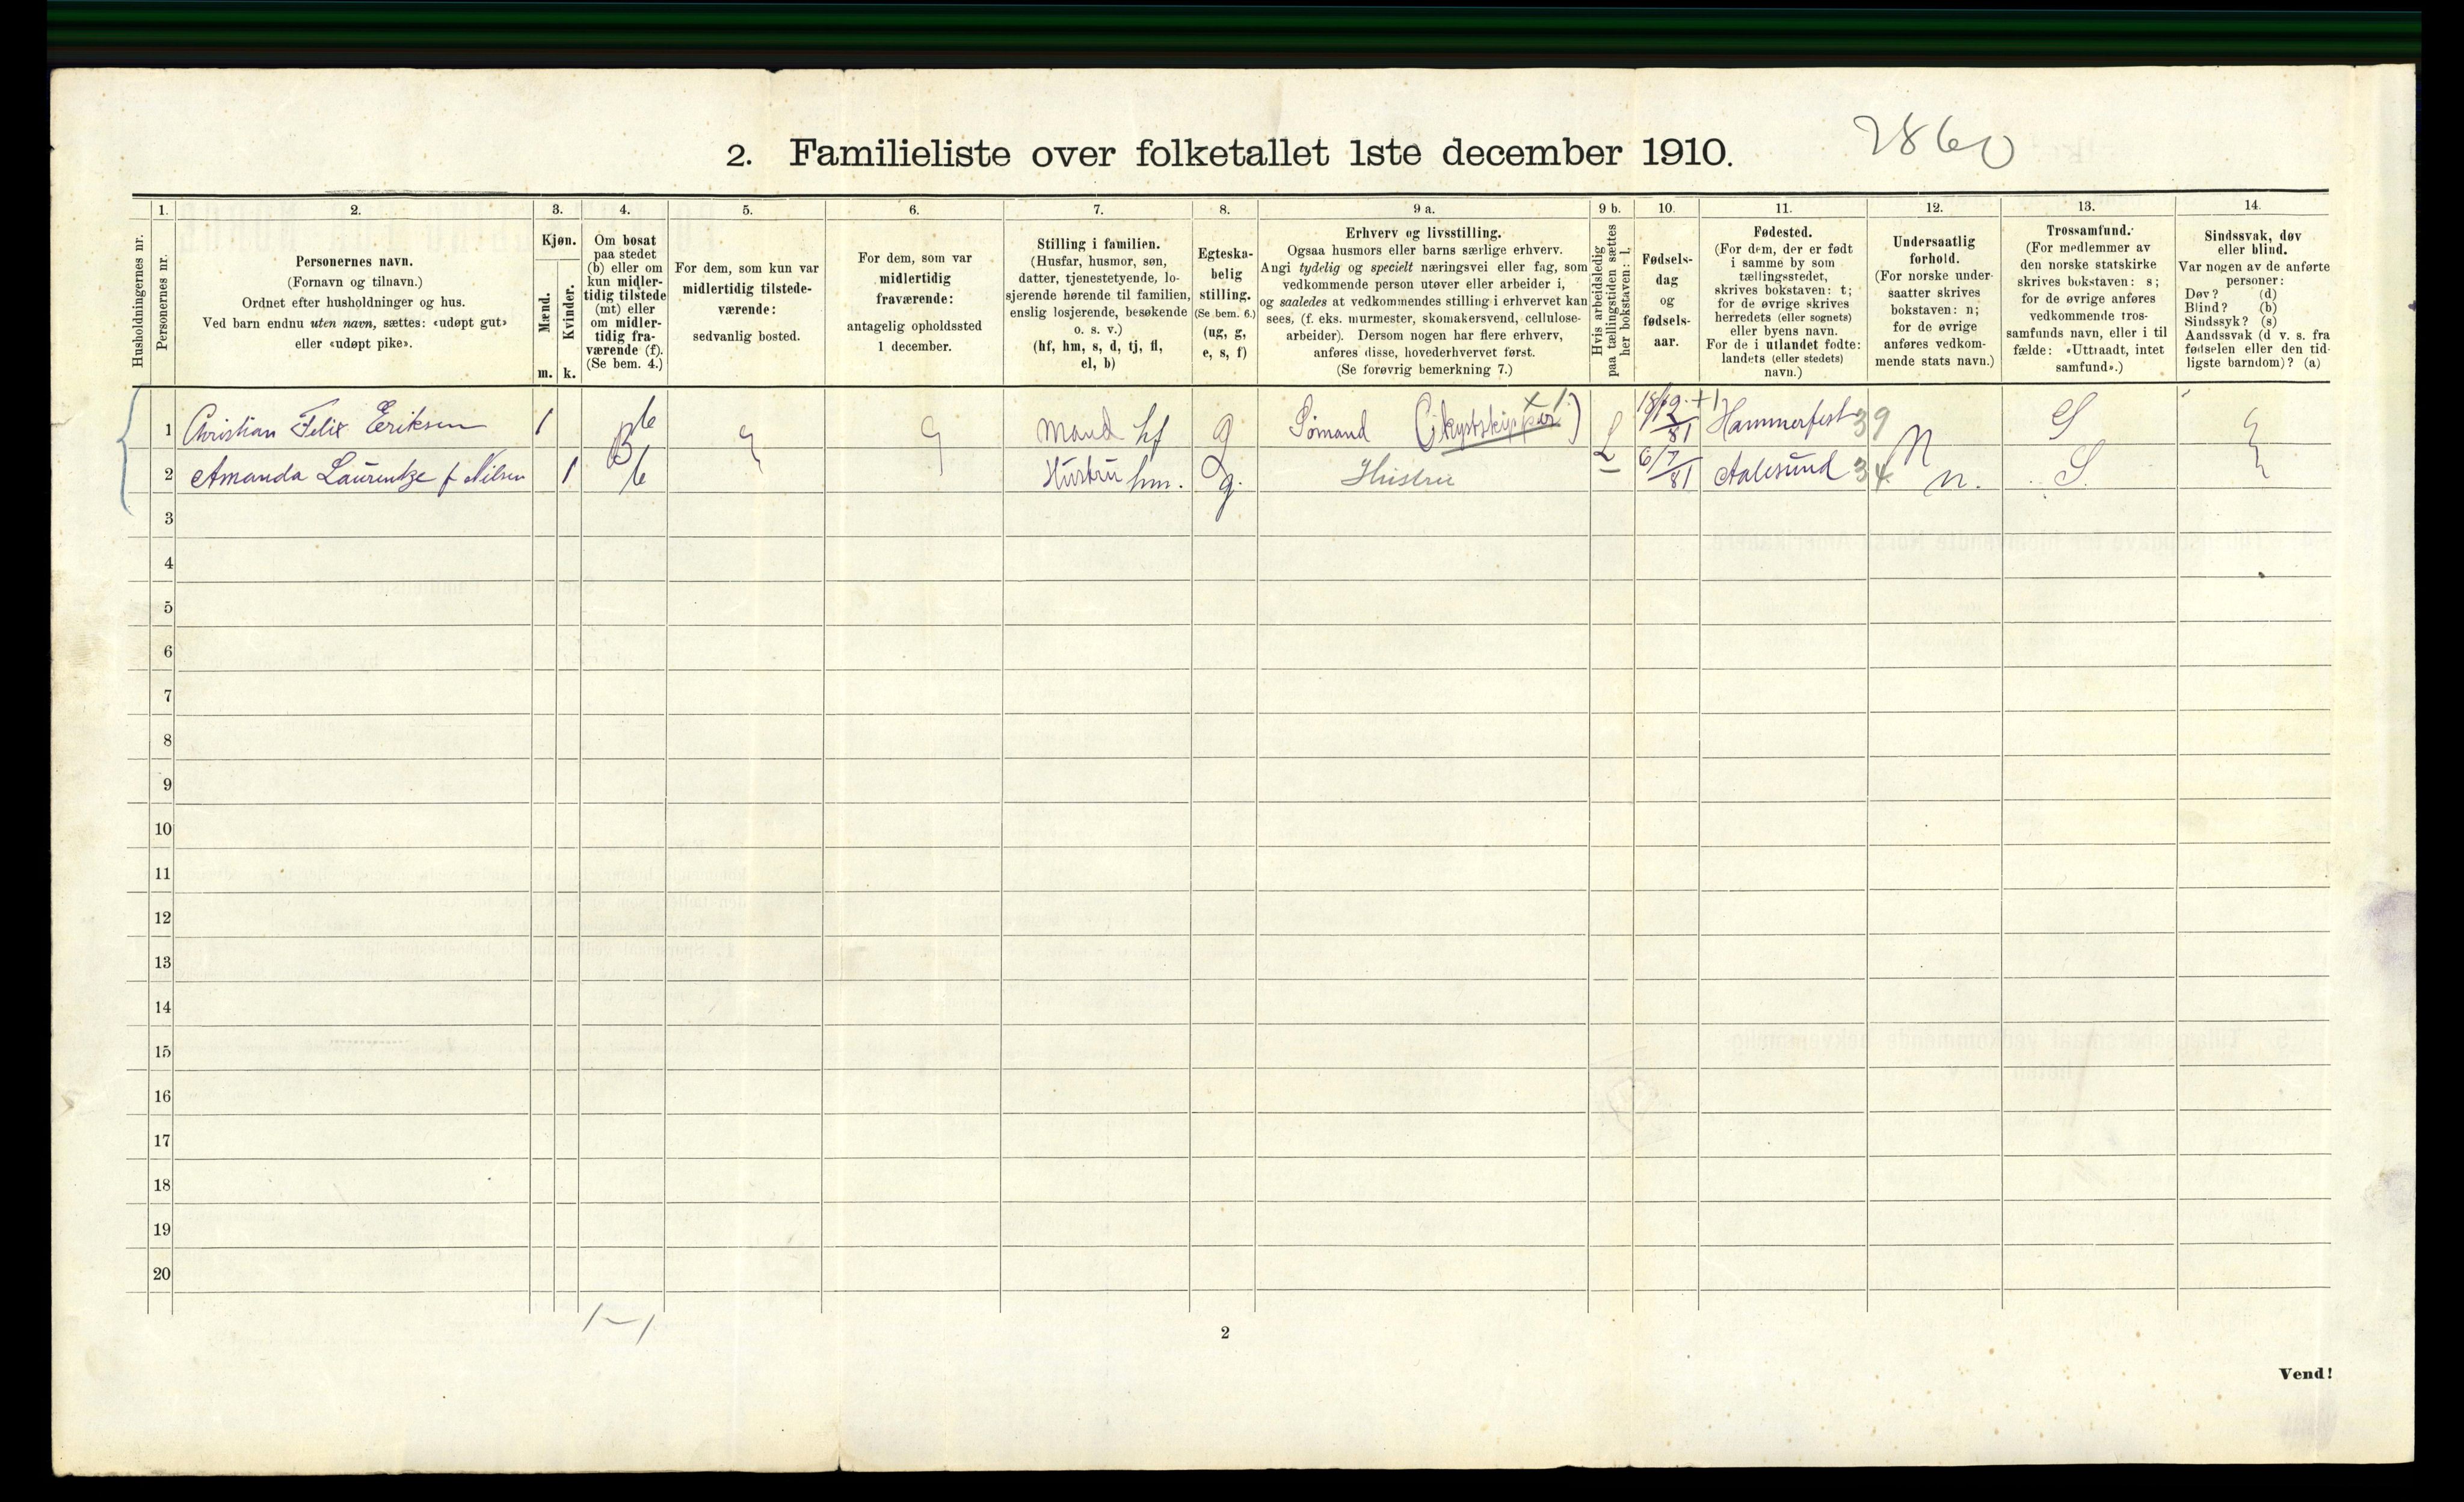 2. Familieliste over folketallet 1ste december 1910.
2860
Husholdningernes nr.
1.
Personernes nr.
2.
Personernes navn.
(Fornavn og tilnavn.)
Ordnet efter husholdninger og hus.
Ved barn endnu uten navn, sættes: «udøpt gut»
eller «udøpt pike».
3.
Kjøn.
Mænd.
Kvinder.
m. k.
4.
Om bosat
paa stedet
(b) eller om
kun midler-
tidig tilstede
(mt) eller
om midler-
tidig fra-
værende (f).
(Se bem. 4.)
5.
For dem, som kun var
midlertidig tilstede-
værende:
sedvanlig bosted.
6.
For dem, som var
midlertidig
fraværende:
antagelig opholdssted
1 december.
7.
Stilling i familien.
(Husfar, husmor, søn,
datter, tjenestetyende, lo-
sjerende hørende til familien,
enslig losjerende, besøkende
o. s. v.)
(hf, hm, s, d, tj, fl,
el, b)
8.
Egteska-
belig
stilling.
(Se bem. 6.)
(ug, g,
e, s, f)
9 a.
Erhverv og livsstilling.
Ogsaa husmors eller barns særlige erhverv.
Angi tydelig og specielt næringsvei eller fag, som
vedkommende person utøver eller arbeider i,
og saaledes at vedkommendes stilling i erhvervet kan
sees, (f. eks. murmester, skomakersvend, cellulose-
arbeider). Dersom nogen har flere erhverv,
anføres disse, hovederhvervet først.
(Se forøvrig bemerkning 7.)
9 b.
Hvis arbeidsledig
paa tællingstiden sættes
her bokstaven: l.
10.
Fødsels-
dag
og
fødsels-
aar.
11.
Fødested.
(For dem, der er født
i samme by som
tællingsstedet,
skrives bokstaven: t;
for de øvrige skrives
herredets (eller sognets)
eller byens navn.
For de i utlandet fødte:
landets (eller stedets)
navn.)
12.
Undersaatlig
forhold.
(For norske under-
saatter skrives
bokstaven: n;
for de øvrige
anføres vedkom-
mende stats navn.)
13.
Trossamfund.
(For medlemmer av
den norske statskirke
skrives bokstaven: s;
for de øvrige anføres
vedkommende tros-
samfunds navn, eller i til
fælde: «Uttraadt, intet
samfund».)
14.
Sindssvak, døv
eller blind.
Var nogen av de anførte
personer:
Døv? (d)
Blind? (b)
Sindssyk? (s)
Aandssvak (d v. s. fra
fødselen eller den tid-
ligste barndom)? (a)
1 Christian Felix Eriksen 1 B b Mand hf g Sømand (kystskipper) x 1. L 18/12 81 +1 Hammerfest 39 N S
2 Amanda Laurentze f Nilsen 1 b Hustru hm. g. Hustru 6/7 81 Aalesund 34 n. S.
3
4
5
6
7
8
9
10
11
12
13
14
15
16
17
18
19
20
1-1
2
Vend!